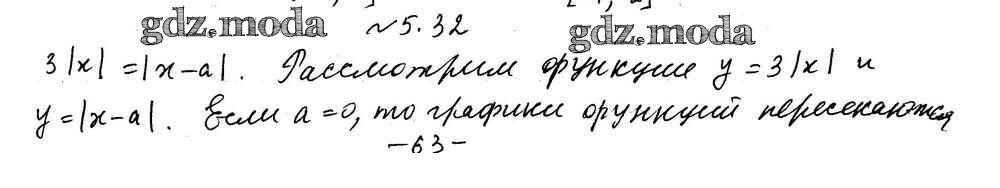 gdz.moda №5.32 gdz.moda
3|x| = |x-a|. Рассмотрим функции y = 3|x| и
y = |x-a|. Если a = 0, то графики функций пересекаются
-63-